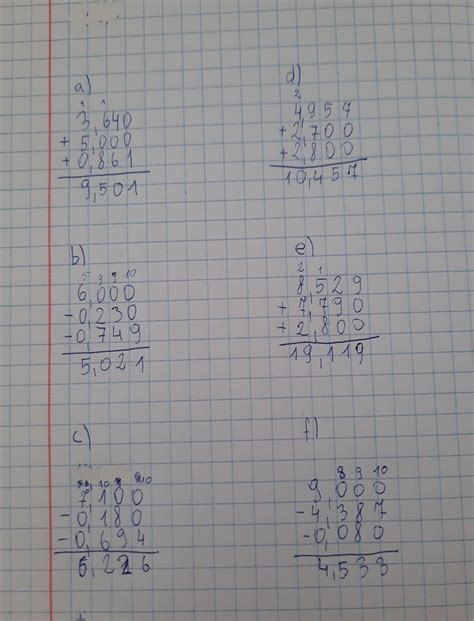 a)
3,640
+ 5,000
+ 0,861
9,501
b)
5 9 9 10
6,000
- 0,230
- 0,749
5,021
c)
7,100
- 0,180
- 0,694
6,226
d)
2
4,957
+ 2,700
+ 2,800
10,457
e)
2 1
8,529
+ 7,790
+ 2,800
19,119
f)
8 9 10
9 000
- 4,387
- 0,080
4,533